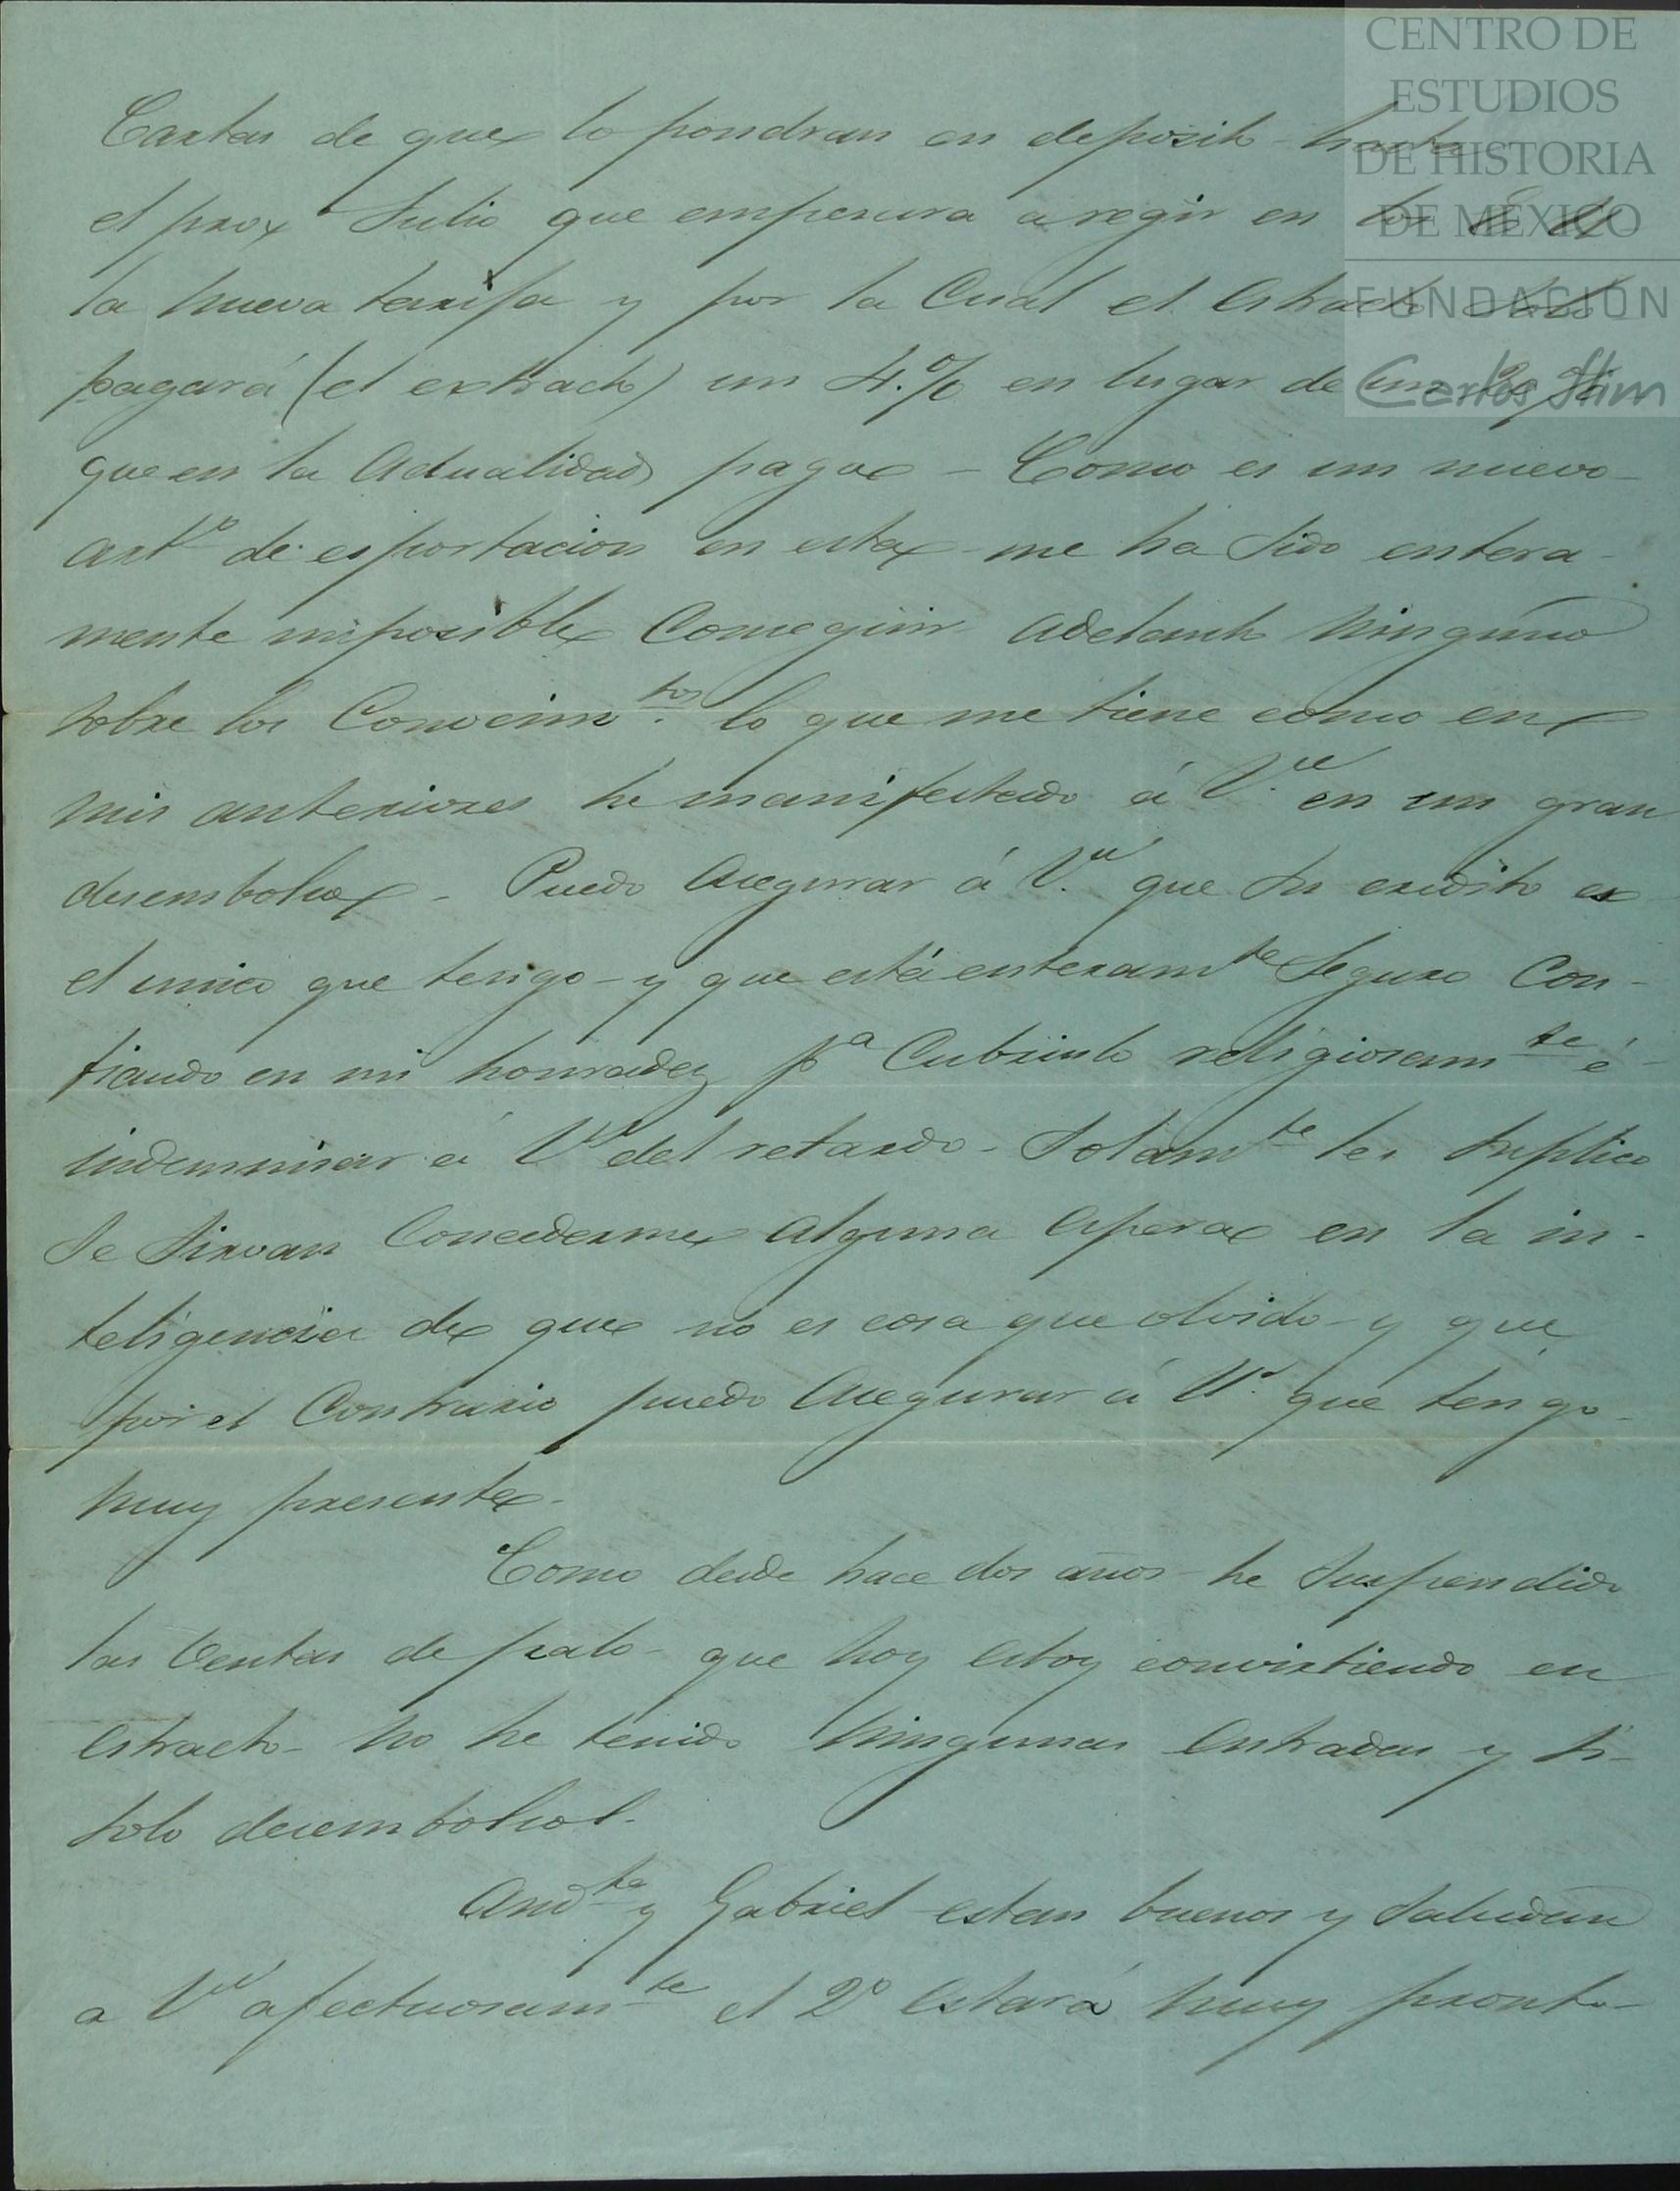 CENTRO DE
ESTUDIOS
DE HISTORIA
DE MÉXICO
FUNDACIÓN
Carlos Slim
Cartas de que lo pondran en deposito hasta
el prox Julio que empesara a regir en los E. U.
la nueva tarifa y por la Cual el Estracto
pagará (el extracto) un 4.% en lugar de un 20 %
que en la Actualidad paga - Como es un nuevo
artº de esportacion en esta me ha Sido entera-
mente imposible Conseguir adelanto ninguno
sobre los Conocimtos. lo que me tiene como en
mis anteriores hé manifestado á V.es en un gran
desembolso - Puedo Asegurar á V.es que Su credito es
el unico que tengo - y que está enteramte Seguro Con-
fiando en mi honradez pa Cubrirlo religiosamte é
indemnisar á Vs del retardo - Solamte les Suplico
Se Sirvan Concederme Alguna Espera en la in-
teligencia de que no es cosa que olvido - y que
por el Contrario puedo Asegurar á Vs. que tengo
muy presente.
Como desde hace dos años he Suspendido
las Ventas de palo - que hoy estoy convirtiendo en
Estracto - no he tenido ningunas Entradas y si
solo desembolsos.
Andte y Gabriel estan buenos y Saludan
a Vs afectuosamte el 2º Estará muy pronto